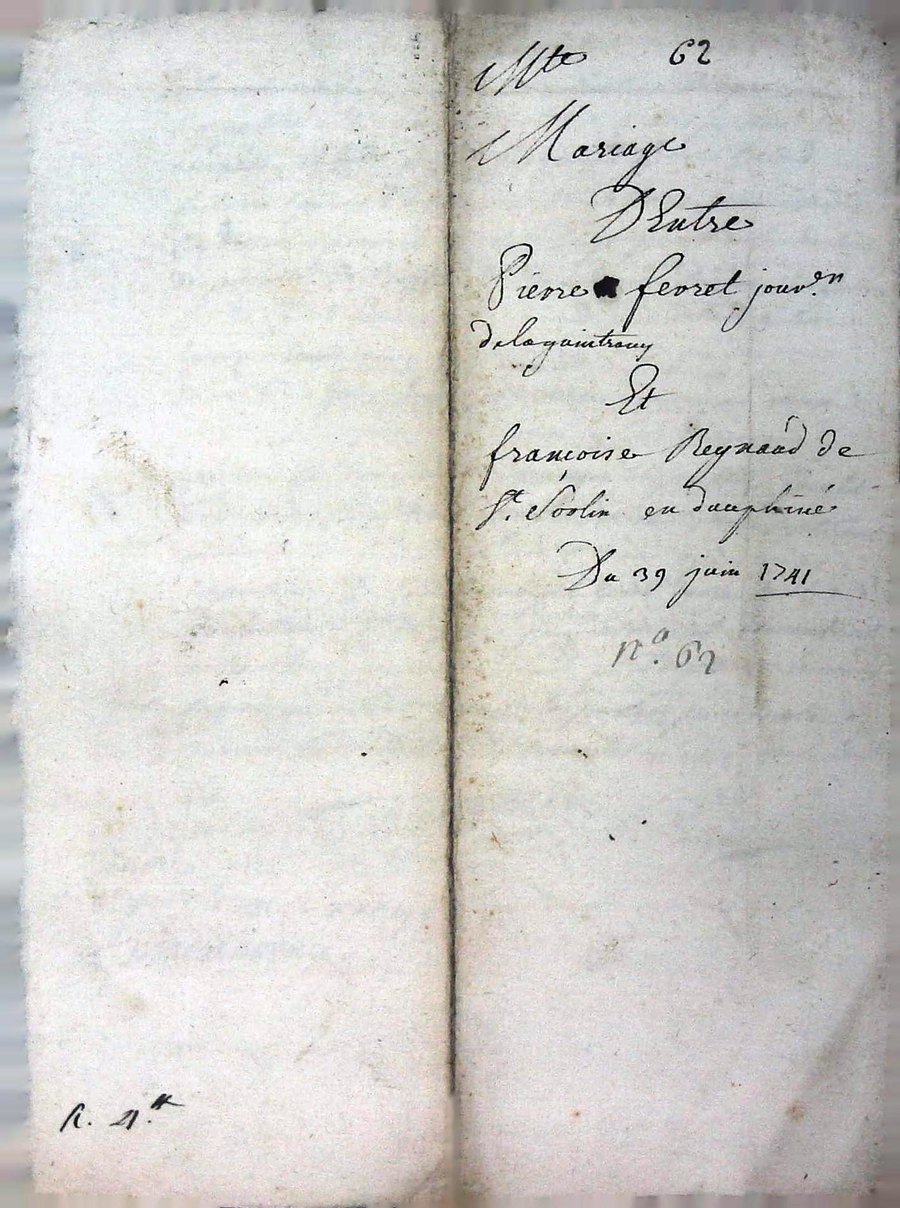 Mte 62
Mariage
D'Entre
Pierre ferret jour.en
de la
Et
françoise Reynaud de
St. Sorlin en dauphiné
Du 39 juin 1741
n.o 62
R. 4.tt